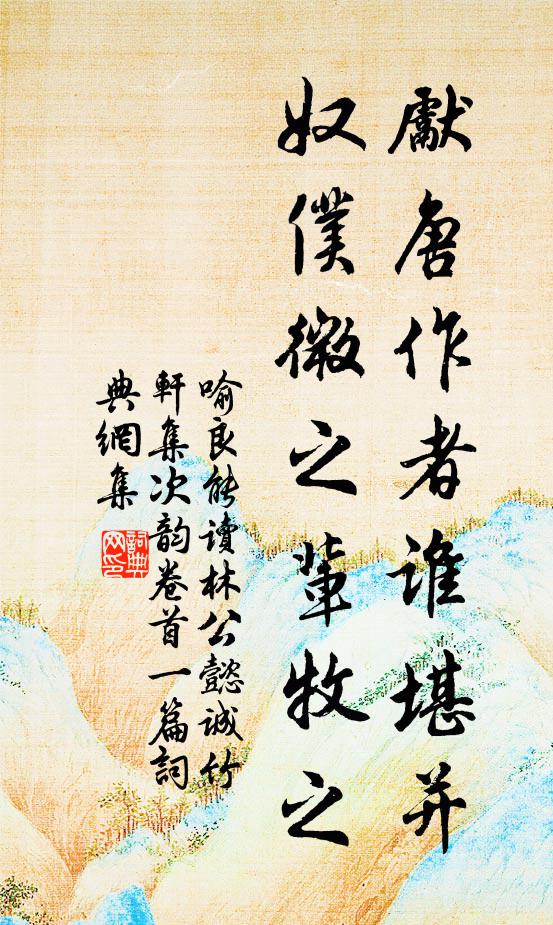 獻唐作者谁堪并
奴僕微之輩牧之
喻良能讀林公懿诚竹
軒集次韵卷首一篇詞
典網集
詞典
网印